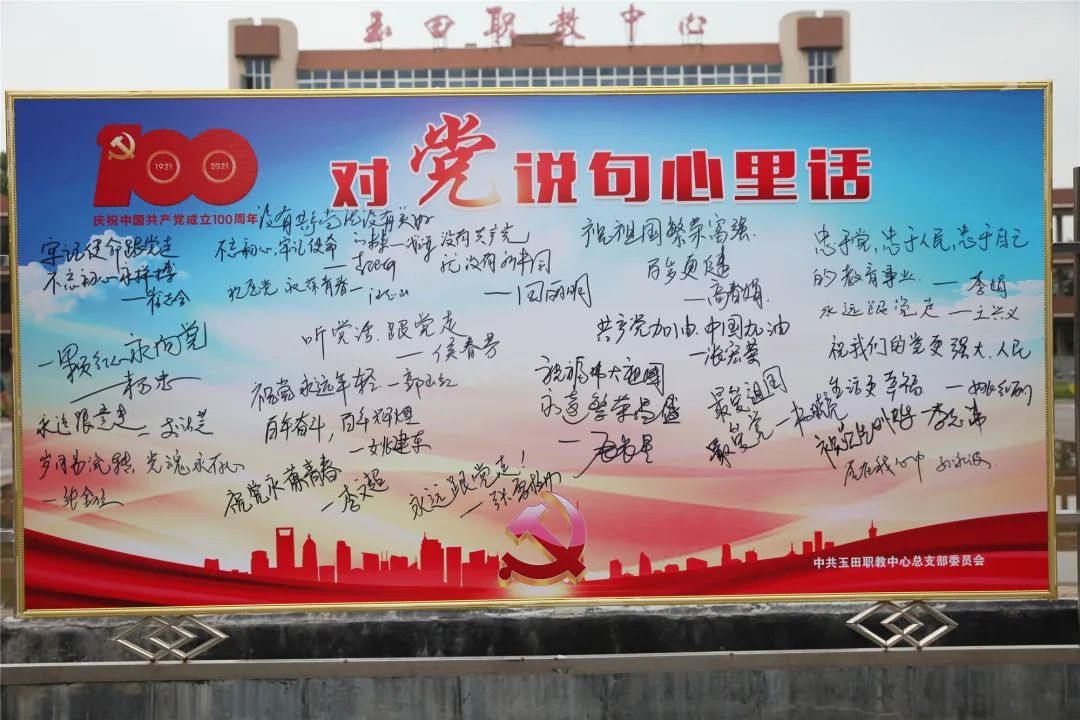 玉田职教中心
100
1921
2021
庆祝中国共产党成立100周年
对党说句心里话
牢记使命跟党走
不忘初心
没有共产党
不忘初心，牢记使命
没有共产党
就没有新中国
——田丽明
祝祖国繁荣富强
百岁更健
——高春娟
忠于党，忠于人民，忠于自己
的教育事业。——李娟
永远跟党走——王兴义
一颗红心永向党
听党话，跟党走
——侯春芳
共产党加油，中国加油
——张宏蕾
祝我们的党更强大，人民
生活更幸福
祝党永远年轻——郭
祝福伟大祖国
永远繁荣昌盛
最爱祖国
最爱党
永远跟党走
百年奋斗，百年辉煌
——姚建东
岁月易流转，党魂永存心
祝党永葆青春
——李文超
永远跟党走！
党在我心中
中共玉田职教中心总支部委员会